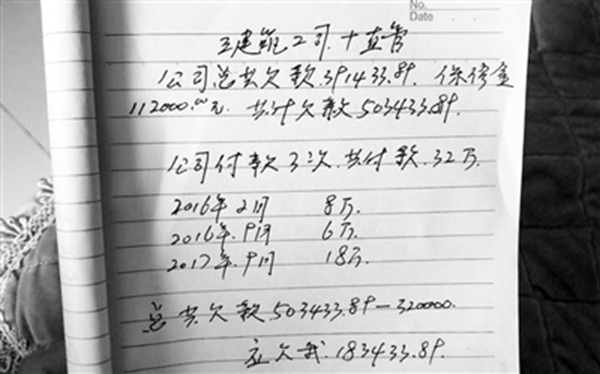 No.
Date
五建筑公司.十直管
公司总共欠款.391433.89. 保修金
112000.00元. 共计欠款503433.89.
公司付款3次.共付款.32万.
2016年2月 8万.
2016年.9月 6万.
2017年.9月 18万.
总共欠款503433.89-320000.
应欠我.183433.89.